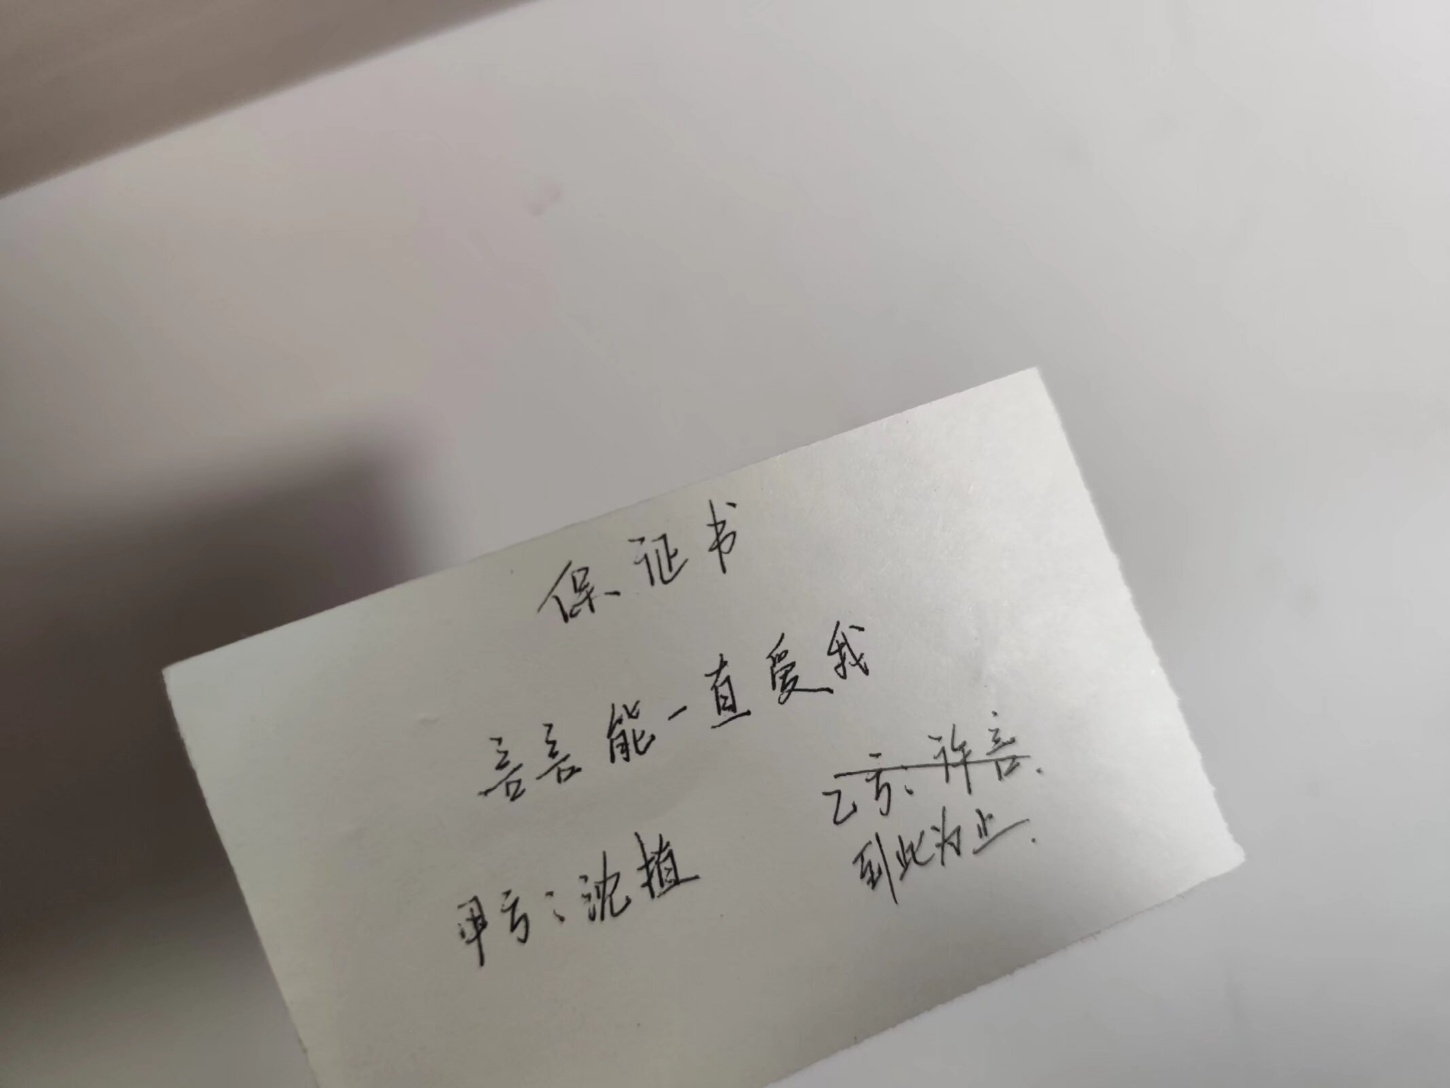 保证书
言言能一直爱我
甲方:沈植
乙方:许言.
到此为止.